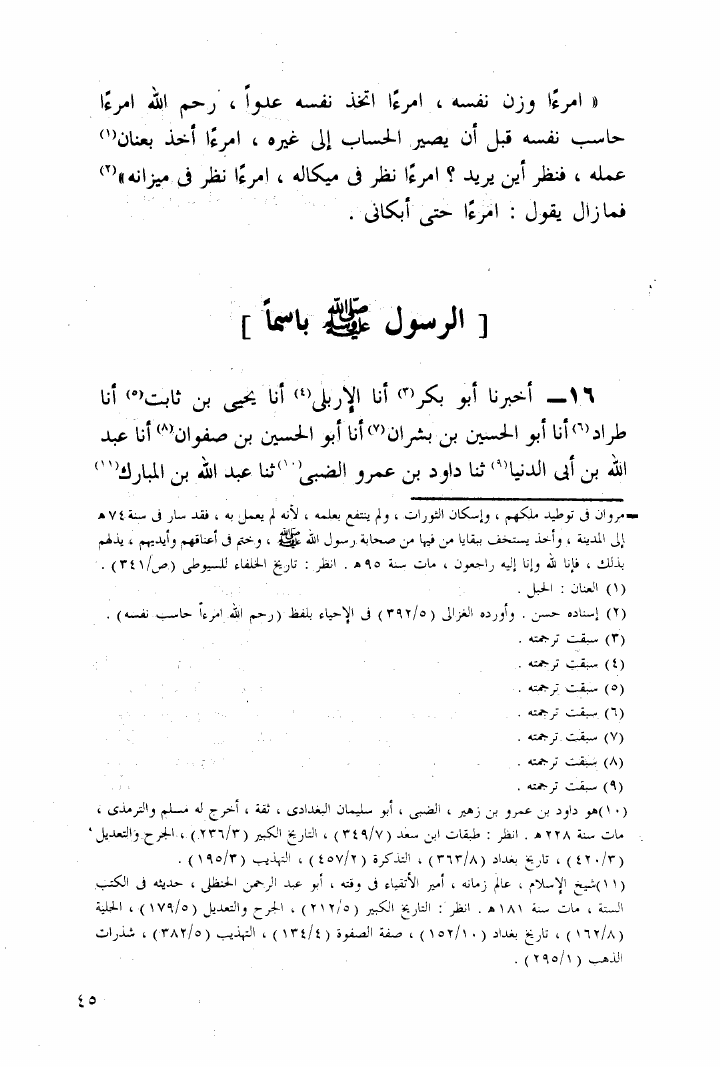 « امرءًا وزن نفسه ، امرءًا اتخذ نفسه عدواً ، رحم الله امرءًا
حاسب نفسه قبل أن يصير الحساب إلى غيره ، امرءًا أخذ بعنان(١)
عمله ، فنظر أين يريد ؟ امرءًا نظر فى ميكاله ، امرءًا نظر فى ميزانه»(٢)
فمازال يقول : امرءًا حتى أبكانى .
[ الرسول ﷺ باسماً ]
١٦ــ أخبرنا أبو بكر(٣) أنا الإربلى(٤) أنا يحيى بن ثابت(٥) أنا
طراد(٦) أنا أبو الحسين بن بشران(٧) أنا أبو الحسين بن صفوان(٨) أنا عبد
الله بن أبى الدنيا(٩) ثنا داود بن عمرو الضبى(١٠) ثنا عبد الله بن المبارك(١١)
=مروان فى توطيد ملكهم ، وإسكان الثورات ، ولم ينتفع بعلمه ، لأنه لم يعمل به ، فقد سار فى سنة ٧٤ هـ
إلى المدينة ، وأخذ يستخف ببقايا من فيها من صحابة رسول الله ﷺ ، وختم فى أعناقهم وأيديهم ، يذلهم
بذلك ، فإنا لله وإنا إليه راجعون ، مات سنة ٩٥ هـ . انظر : تاريخ الخلفاء للسيوطى (ص/٣٤١) .
(١) العنان : الحبل .
(٢) إسناده حسن . وأورده الغزالى (٣٩٢/٥) فى الإحياء بلفظ (رحم الله امرءاً حاسب نفسه) .
(٣) سبقت ترجمته .
(٤) سبقت ترجمته .
(٥) سبقت ترجمته .
(٦) سبقت ترجمته .
(٧) سبقت ترجمته .
(٨) سبقت ترجمته .
(٩) سبقت ترجمته .
(١٠)هو داود بن عمرو بن زهير ، الضبى ، أبو سليمان البغدادى ، ثقة ، أخرج له مسلم والترمذى ،
مات سنة ٢٢٨ هـ . انظر : طبقات ابن سعد (٣٤٩/٧) ، التاريخ الكبير (٢٣٦/٣) ، الجرح والتعديل
(٤٢٠/٣) ، تاريخ بغداد (٣٦٣/٨) ، التذكرة (٤٥٧/٢) ، التهذيب (١٩٥/٣) .
(١١)شيخ الإسلام ، عالم زمانه ، أمير الأتقياء فى وقته ، أبو عبد الرحمن الحنظلى ، حديثه فى الكتب
الستة ، مات سنة ١٨١ هـ . انظر : التاريخ الكبير (٢١٢/٥) ، الجرح والتعديل (١٧٩/٥) ، الحلية
(١٦٢/٨) ، تاريخ بغداد (١٥٢/١٠) ، صفة الصفوة (١٣٤/٤) ، التهذيب (٣٨٢/٥) ، شذرات
الذهب (٢٩٥/١) .
٤٥